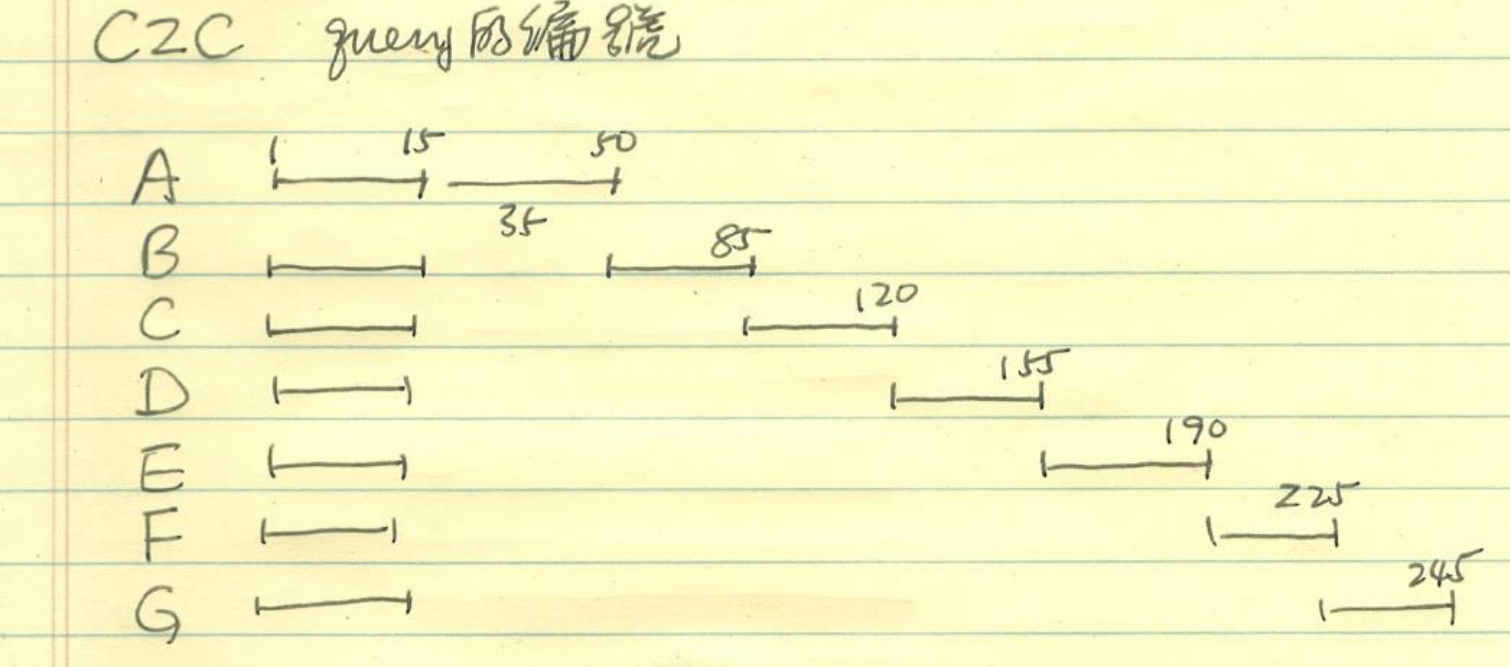 C2C query的編號
1 15 50
A
35
B 85
C 120
D 155
E 190
F 225
G 245